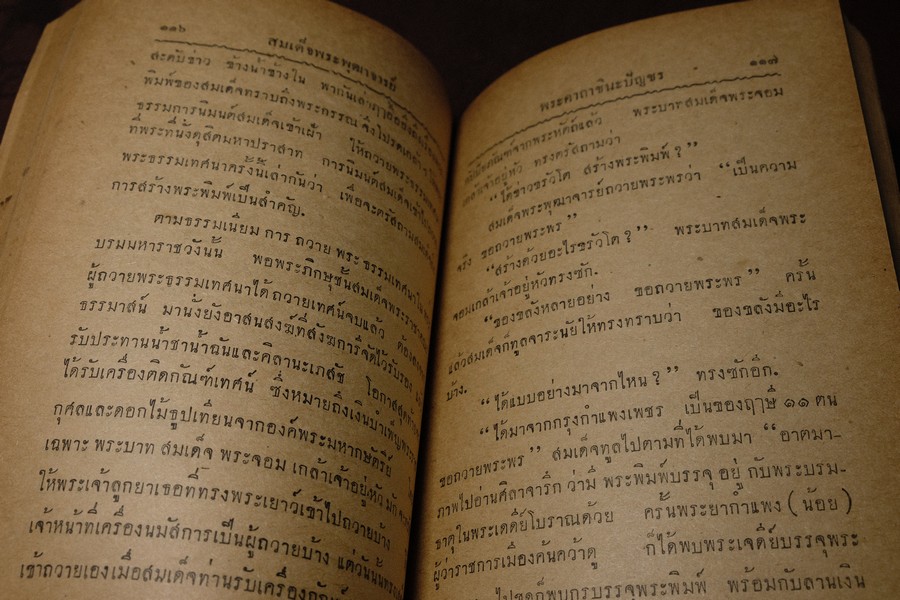 ๑๑๖ สมเด็จพระพุฒาจารย์
สะดับข่าว ข้างน้ำข้างใน พากันเล่าฦๅ
พิมพ์ของสมเด็จทราบถึงพระกรรณ จึงโปรดเกล้า ฯ
ธรรมการนิมนต์สมเด็จเข้าเฝ้า ให้ถวายพระธรรมเทศนา
ที่พระที่นั่งดุสิตมหาปราสาท การนิมนต์สมเด็จเข้าไปถวาย
พระธรรมเทศนาครั้งนี้เล่ากันว่า เพื่อจะตรัสถามสมเด็จ
การสร้างพระพิมพ์เป็นสำคัญ.
ตามธรรมเนียม การ ถวาย พระ ธรรมเทศนา ใน
บรมมหาราชวังนั้น พอพระภิกษุชั้นสมเด็จพระราชา
ผู้ถวายพระธรรมเทศนาได้ ถวายเทศน์จบแล้ว ต้องลงจาก
ธรรมาสน์ มานั่งยังอาสนสงฆ์ที่สังฆการีจัดไว้รับรอง
รับประทานน้ำชาน้ำฉันและคิลานะเภสัช โอกาสสุดท้าย
ได้รับเครื่องติดกัณฑ์เทศน์ ซึ่งหมายถึงเงินบำเพ็ญพระราช
กุศลและดอกไม้ธูปเทียนจากองค์พระมหากษัตริย์
เฉพาะ พระบาท สมเด็จ พระจอม เกล้าเจ้าอยู่หัว มัก
ให้พระเจ้าลูกยาเธอที่ทรงพระเยาว์เข้าไปถวายบ้าง
เจ้าหน้าที่เครื่องนมัสการเป็นผู้ถวายบ้าง แต่วันนั้นทรง
เข้าถวายเองเมื่อสมเด็จท่านรับเครื่องกัณฑ์
พระคาถาชินะปัญชร ๑๑๗
จากพระหัตถ์แล้ว พระบาทสมเด็จพระจอม
เกล้าเจ้าอยู่หัว ทรงตรัสถามว่า
“ได้ข่าวขรัวโต สร้างพระพิมพ์ ?”
สมเด็จพระพุฒาจารย์ถวายพระพรว่า “เป็นความ
จริง ขอถวายพระพร”
“สร้างด้วยอะไรขรัวโต ?” พระบาทสมเด็จพระ
จอมเกล้าเจ้าอยู่หัวทรงซัก.
“ของขลังหลายอย่าง ขอถวายพระพร” ครั้น
แล้วสมเด็จก็ทูลจาระนัยให้ทรงทราบว่า ของขลังมีอะไร
บ้าง.
“ได้แบบอย่างมาจากไหน ?” ทรงซักอีก.
“ได้มาจากกรุงกำแพงเพชร เป็นของฤๅษี ๑๑ ตน
ขอถวายพระพร” สมเด็จทูลไปตามที่ได้พบมา “อาตมา-
ภาพไปอ่านศิลาจารึก ว่ามี พระพิมพ์บรรจุ อยู่ กับพระบรม-
ธาตุในพระเดดีย์โบราณด้วย ครั้นพระยากำแพง (น้อย)
ผู้ว่าราชการเมืองค้นคว้าดู ก็ได้พบพระเจดีย์บรรจุพระ
พบกรุบรรจุพระพิมพ์ พร้อมกับลานเงิน